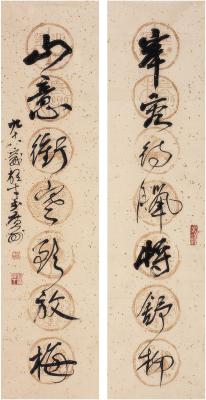 岸容待臘將舒柳
山意衝寒欲放梅
九十八歲